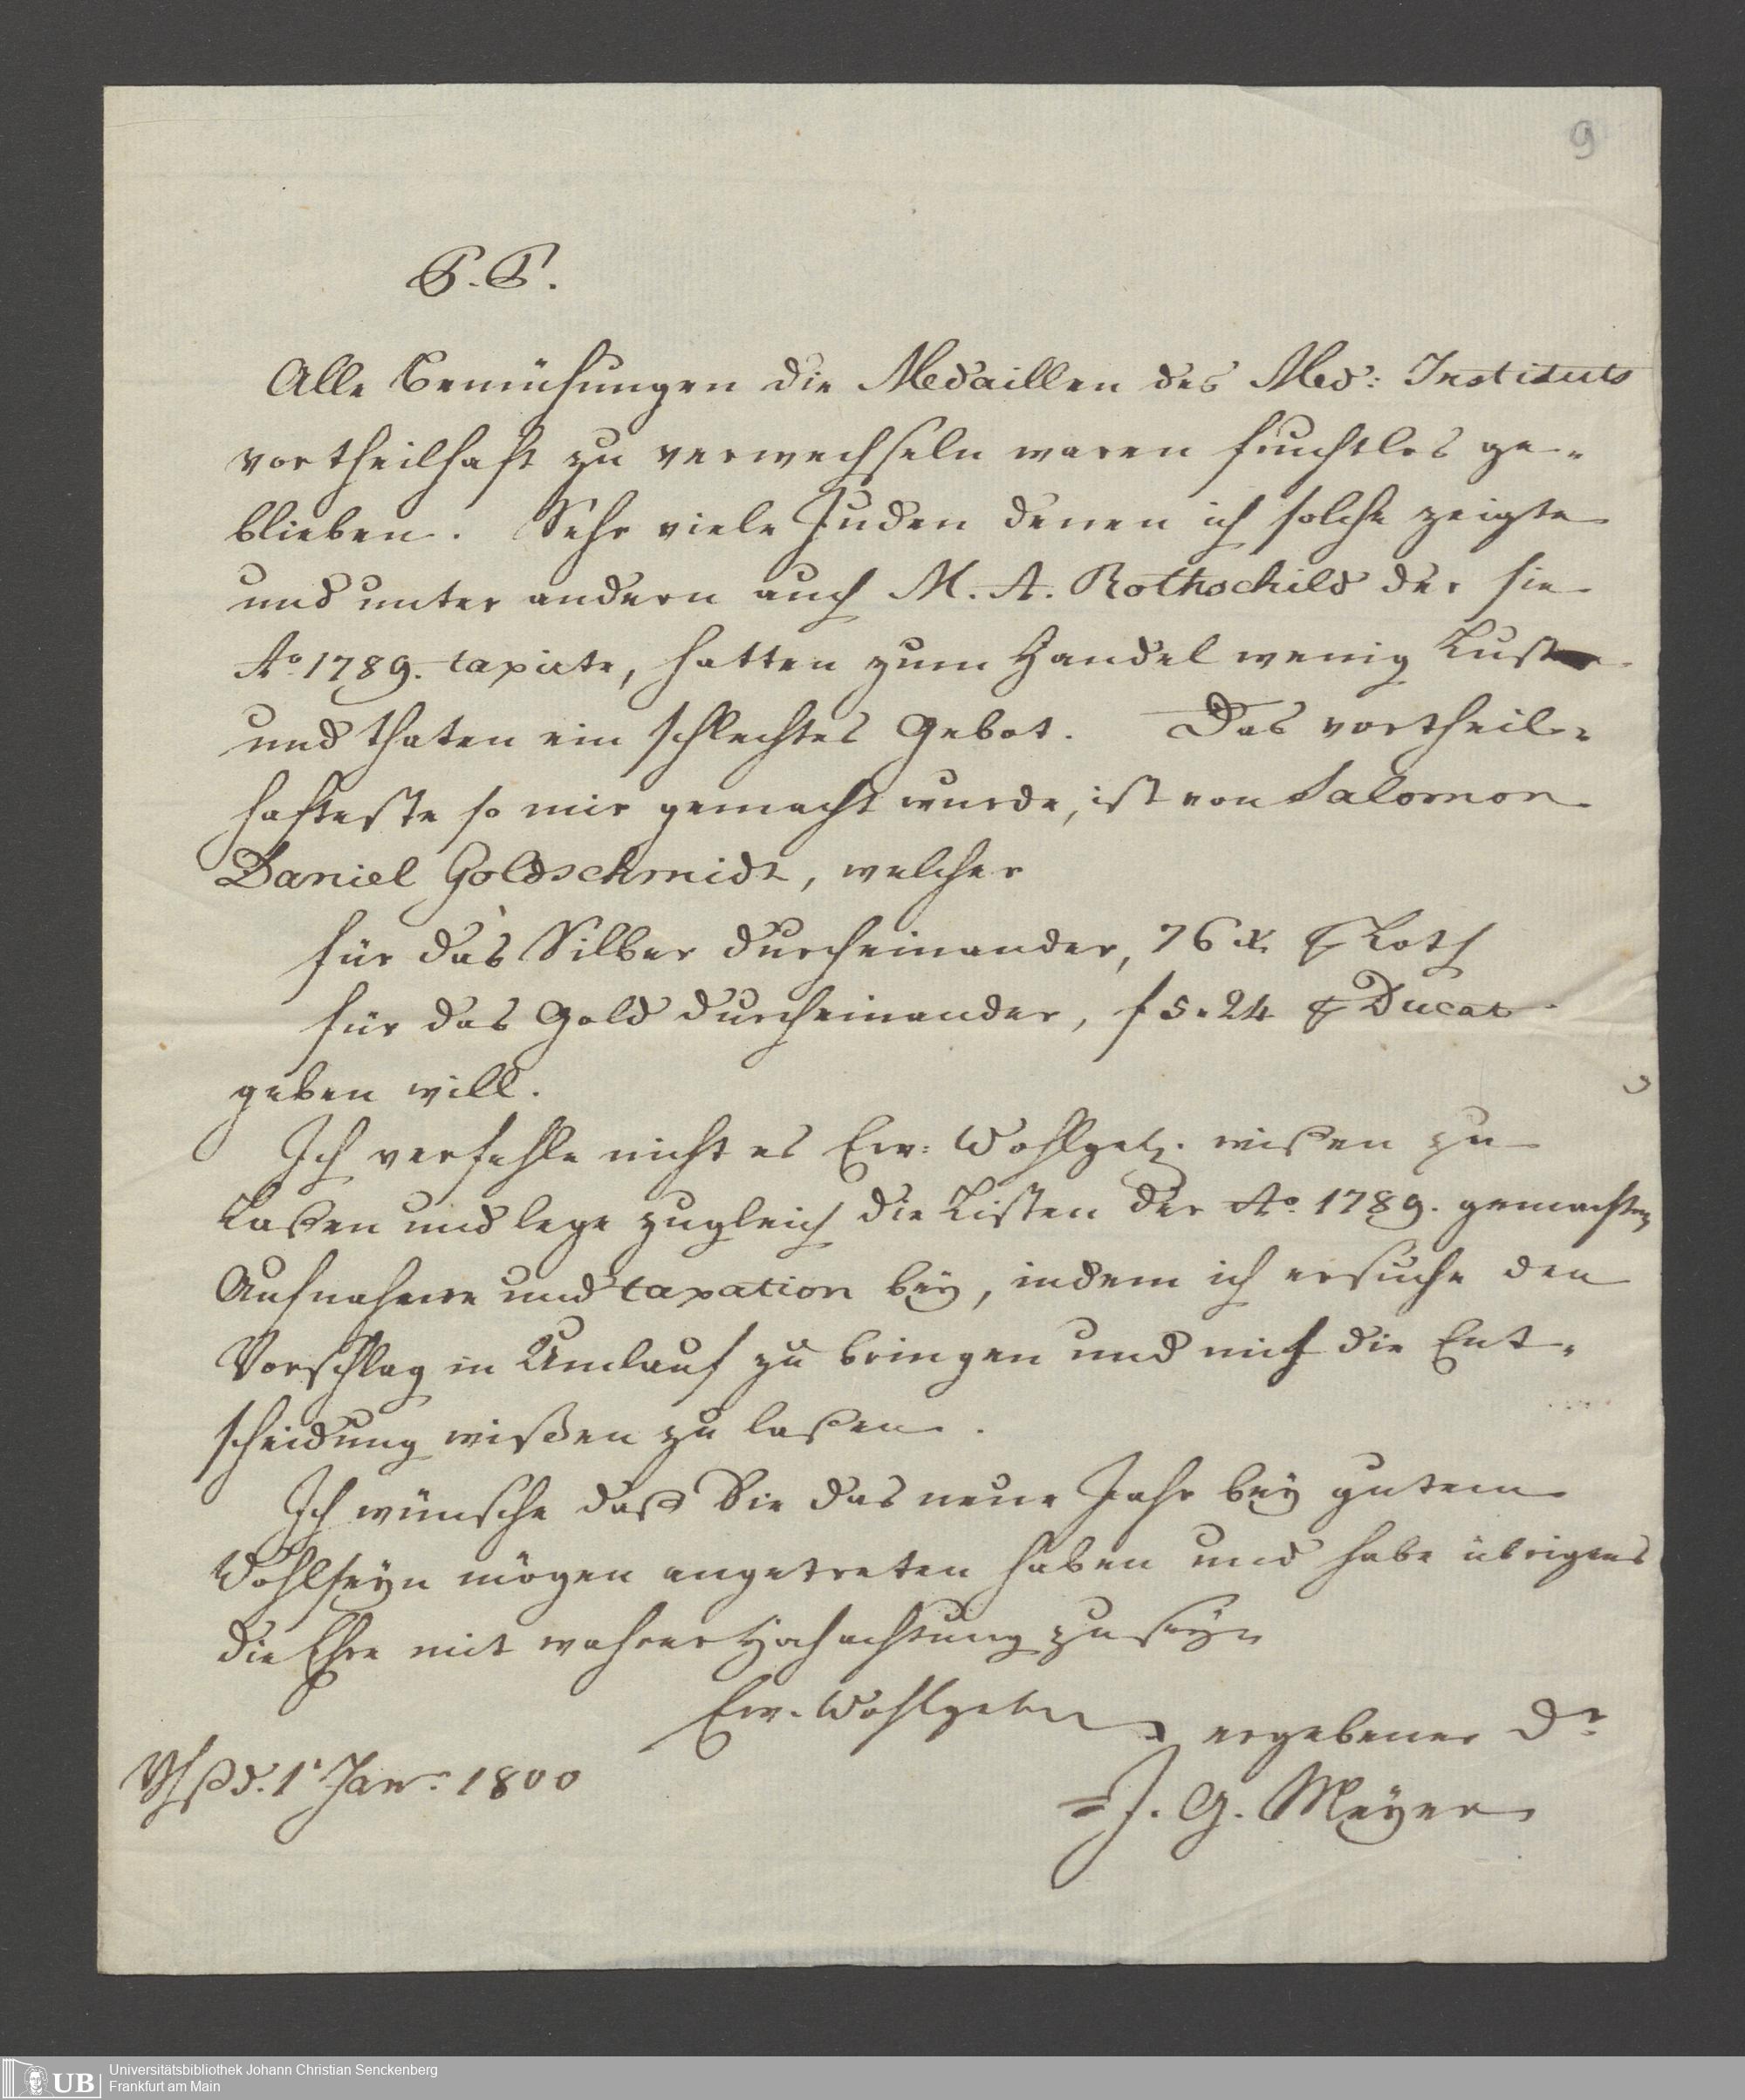 9
P. P.
Alle Bemühungen die Medaillen des Med: Instituts
vortheilhaft zu verwechseln waren fruchtlos ge-
blieben. Sehr viele Juden denen ich solche zeigte
und unter andern auch M. A. Rothschild der sie
Ao. 1789. taxirte, hatten zum Handel wenig Lust
und thaten ein schlechtes Gebot. Das vortheil-
hafteste so mir gemacht wurde, ist von Salomon
Daniel Goldschmidt, welcher
für das Silber durcheinander, 76 Xr. ₰ Loth
für das Gold durcheinander, f 5.24 ₰ Ducat
geben will.
Ich verfehle nicht es Ew: Wohlgeb. wißen zu
laßen und lege zugleich die Listen der Ao. 1789. gemachten
Aufnahme und taxation bey, indem ich ersuche den
Vorschlag in Umlauf zu bringen und mich die Ent-
scheidung wißen zu laßen.
Ich wünsche daß Sie das neue Jahr bey gutem
Wohlseyn mögen angetreten haben und habe übrigens
die Ehre mit wahrer Hochachtung zu seyn
Ew. Wohlgeb. ergebener Dr
d. 1t Jan. 1800
J. G. Meyer
UB Universitätsbibliothek Johann Christian Senckenberg
Frankfurt am Main